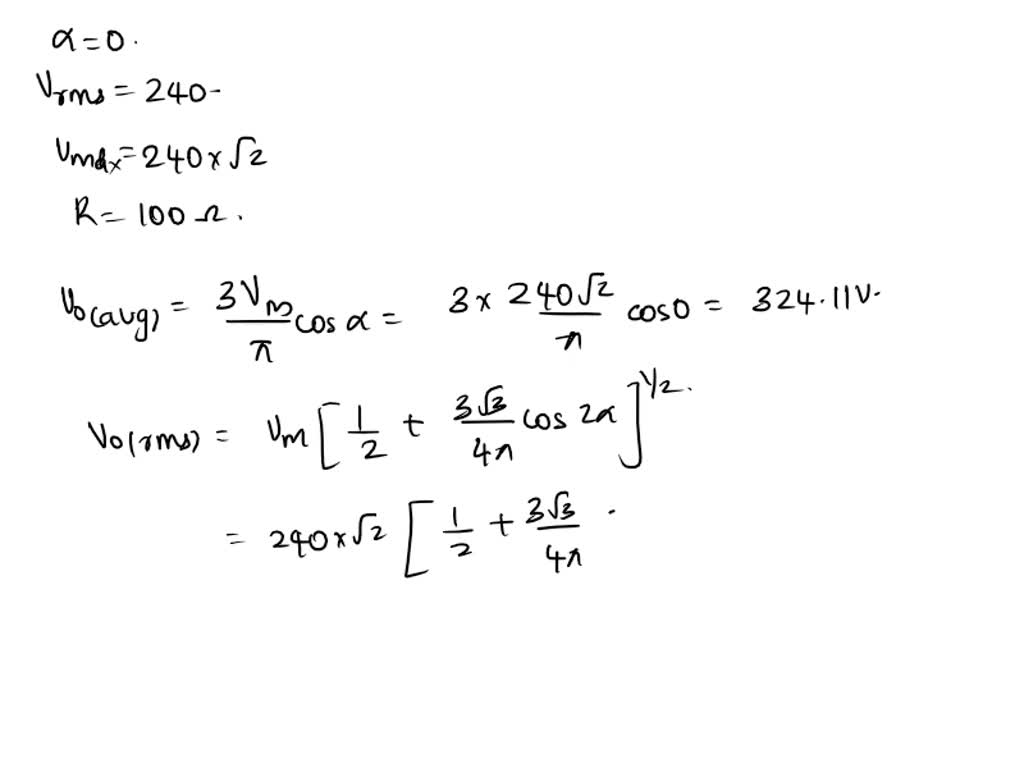 α = 0.
Vrms = 240-
Vmax = 240 × √2
R = 100 Ω.
Vo(avg) = 3Vm/π cos α = 3 × 240√2/π cos0 = 324.11V.
Vo(rms) = Vm [1/2 + 3√3/4π cos 2α]^1/2.
= 240 × √2 [1/2 + 3√3/4π .